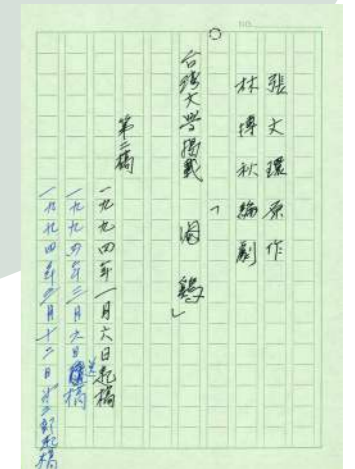 張文環原作
林摶秋編劇
台灣文學揭載「閹鷄」
第二稿
一九九四年一月六日起稿
一九九四年二月六日送稿
一九九四年月十二日起稿